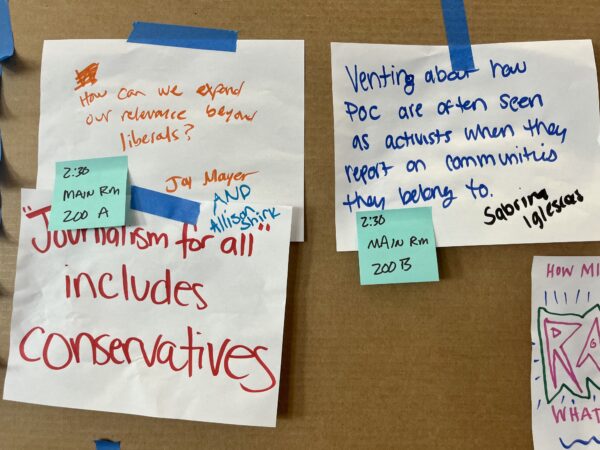 How can we expand
our relevance beyond
liberals?
Joy Mayer
AND
Allison
Shirk
2:30
MAIN Rm
200 A
"Journalism for all"
includes
conservatives
Venting about how
POC are often seen
as activists when they
report on communities
they belong to.
Sabrina
Iglesias
2:30
MAIN Rm
200 B
HOW MI
RA
WHAT